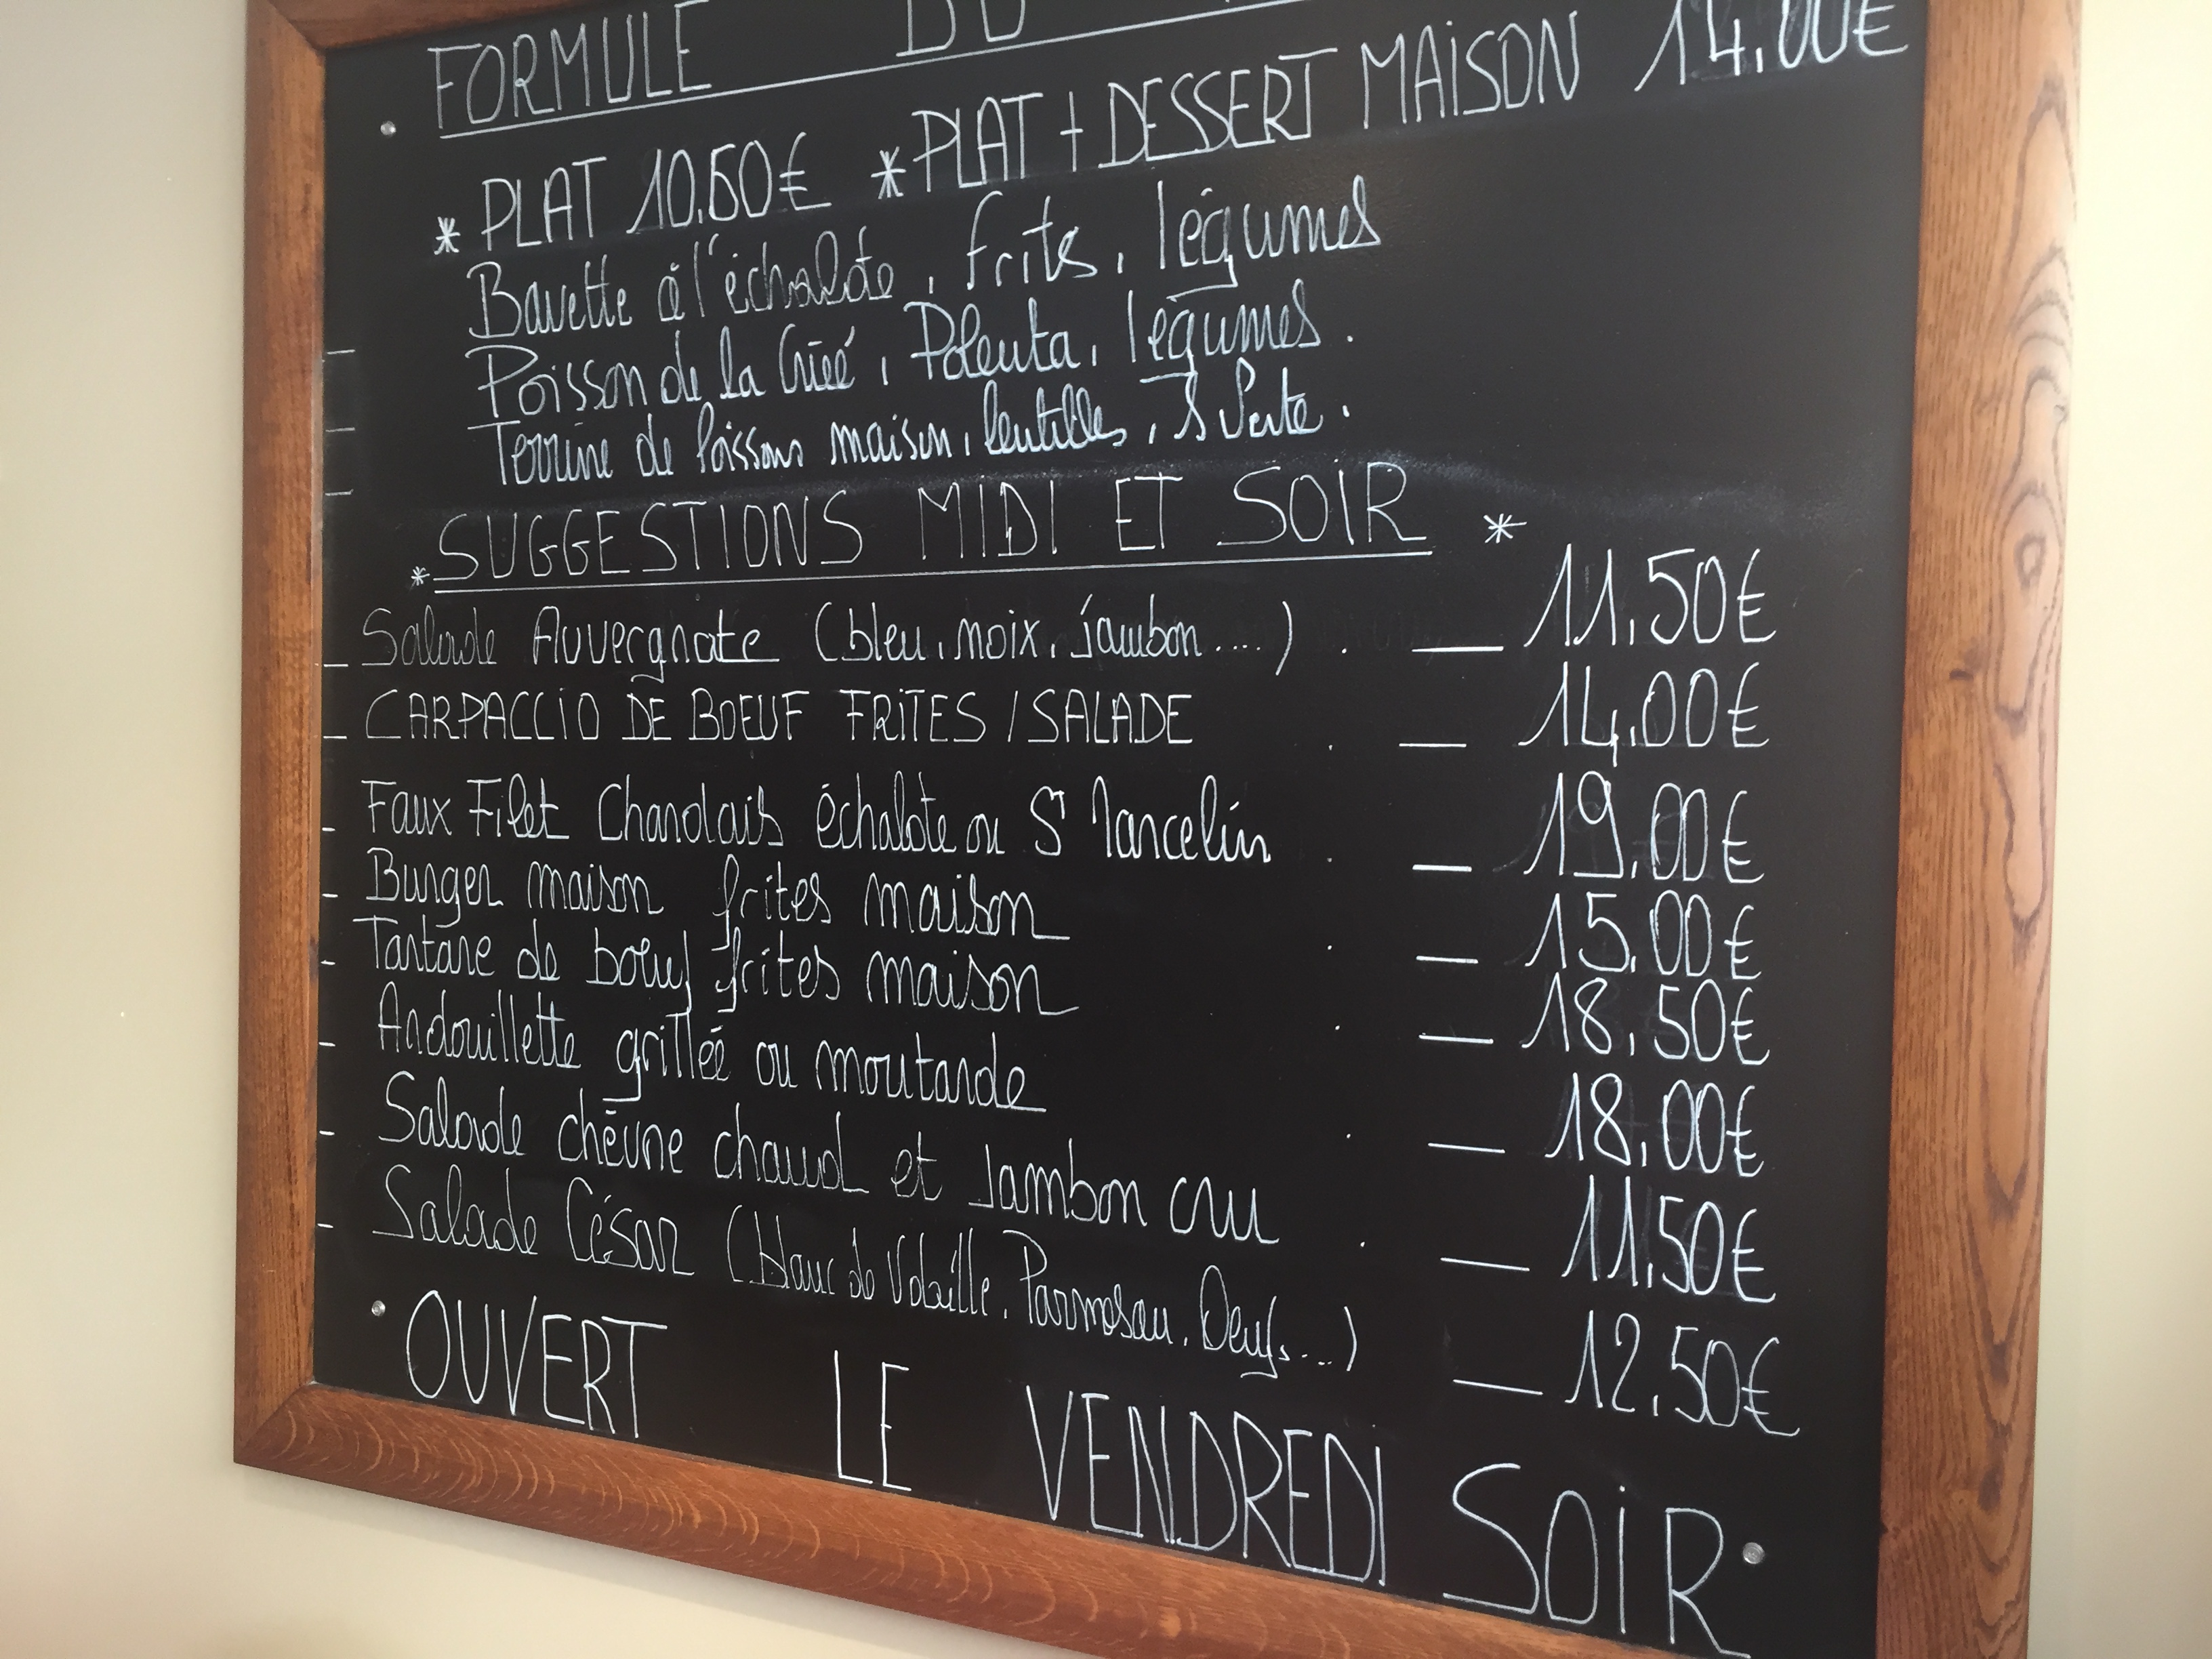 FORMULE DU
* PLAT 10.50€ * PLAT + DESSERT MAISON 14.00€
Bavette à l'échalote, frites, légumes
Poisson de la Criée, Polenta, légumes.
Terrine de Poissons maison, lentilles, S Verte.
* SUGGESTIONS MIDI ET SOIR *
_ Salade Auvergnate (bleu, noix, jambon....) . — 11,50€
_ CARPACCIO DE BOEUF FRITES / SALADE . — 14,00€
- Faux Filet Charolais échalote ou St Marcelin . — 19,00€
- Burger maison frites maison . — 15,00€
- Tartare de boeuf frites maison . — 18,50€
- Andouillette grillée ou moutarde . — 18,00€
- Salade chèvre chaud et Jambon cru . — 11,50€
- Salade César (blanc de Volaille, Parmesan, Oeufs...) — 12,50€
OUVERT LE VENDREDI SOIR